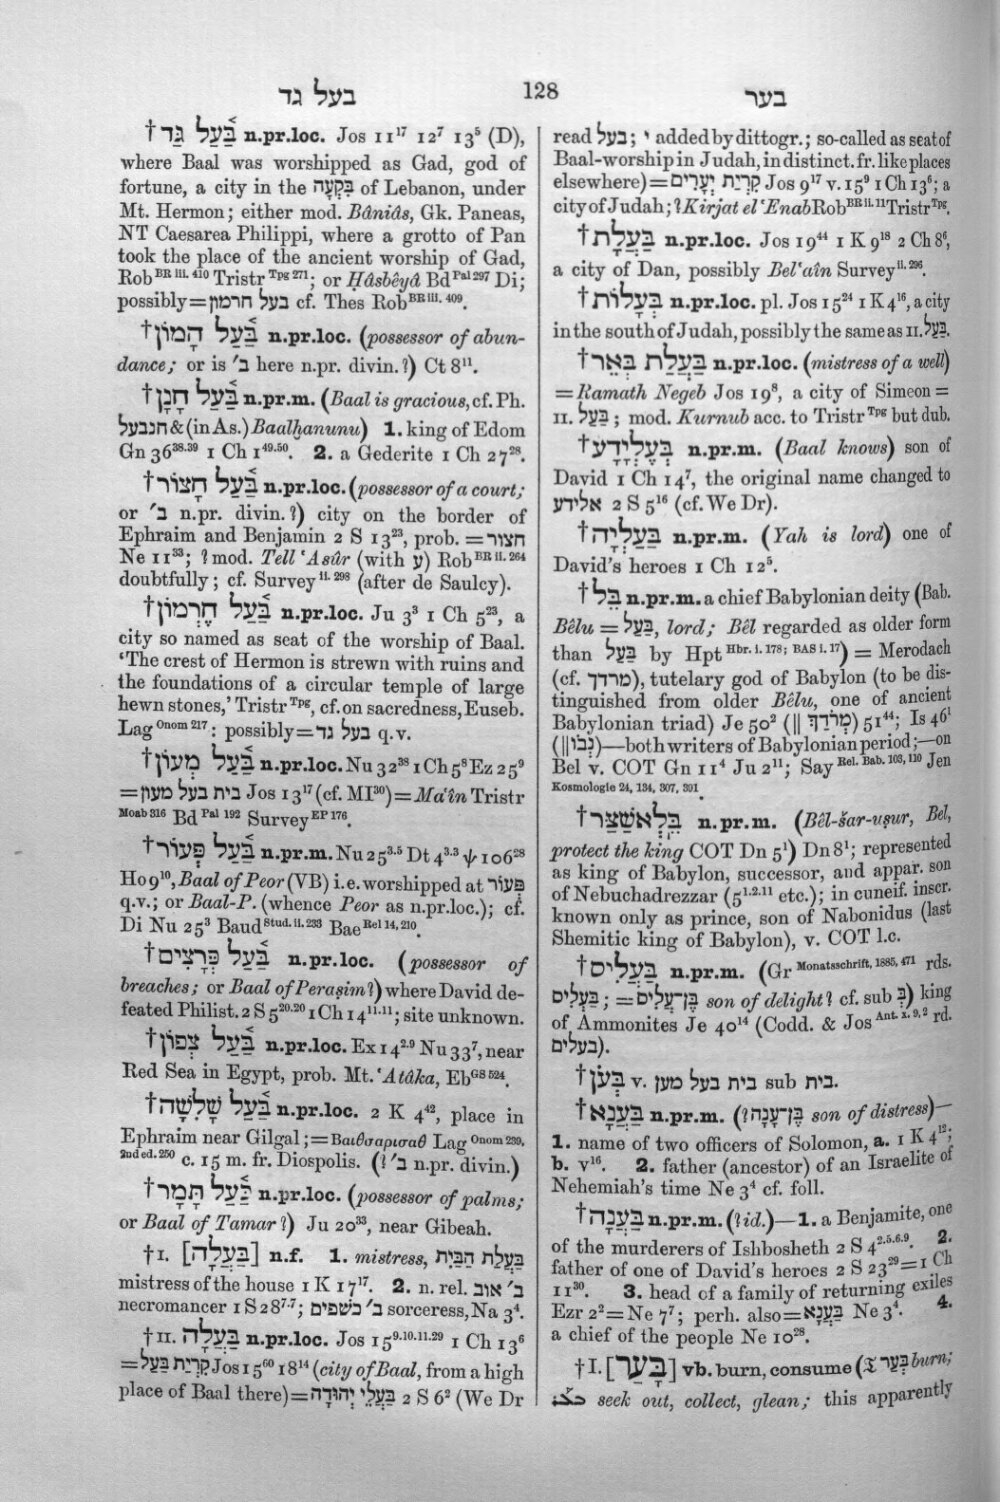 בעל גד
128
בער
† בַּ֫עַל גַּד n.pr.loc. Jos 11¹⁷ 12⁷ 13⁵ (D),
where Baal was worshipped as Gad, god of
fortune, a city in the בִּקְעָה of Lebanon, under
Mt. Hermon; either mod. Bâniâs, Gk. Paneas,
NT Caesarea Philippi, where a grotto of Pan
took the place of the ancient worship of Gad,
Rob BR iii. 410 Tristr Tpg 271; or Ḥâsbêyâ Bd Pal 297 Di;
possibly=בעל חרמון cf. Thes Rob BR iii. 409.
† בַּ֫עַל הָמוֹן n.pr.loc. (possessor of abun-
dance; or is ב׳ here n.pr. divin.?) Ct 8¹¹.
† בַּ֫עַל חָנָן n.pr.m. (Baal is gracious, cf. Ph.
חנבעל & (in As.) Baalḥanunu) 1. king of Edom
Gn 36³⁸·³⁹ 1 Ch 1⁴⁹·⁵⁰. 2. a Gederite 1 Ch 27²⁸.
† בַּ֫עַל חָצוֹר n.pr.loc. (possessor of a court;
or ב׳ n.pr. divin.?) city on the border of
Ephraim and Benjamin 2 S 13²³, prob. = חצור
Ne 11³³; ? mod. Tell ‘Asûr (with ע) Rob BR ii. 264
doubtfully; cf. Survey ii. 298 (after de Saulcy).
† בַּ֫עַל חֶרְמוֹן n.pr.loc. Ju 3³ 1 Ch 5²³, a
city so named as seat of the worship of Baal.
‘The crest of Hermon is strewn with ruins and
the foundations of a circular temple of large
hewn stones,’ Tristr Tpg, cf. on sacredness, Euseb.
Lag Onom 217: possibly=בעל גד q.v.
† בַּ֫עַל מְעוֹן n.pr.loc. Nu 32³⁸ 1 Ch 5⁸ Ez 25⁹
=בית בעל מעון Jos 13¹⁷ (cf. MI³⁰)=Ma‘în Tristr
Moab 316 Bd Pal 192 Survey EP 176.
† בַּ֫עַל פְּעוֹר n.pr.m. Nu 25³·⁵ Dt 4³·³ ψ 106²⁸
Ho 9¹⁰, Baal of Peor (VB) i.e. worshipped at פְּעוֹר
q.v.; or Baal-P. (whence Peor as n.pr.loc.); cf.
Di Nu 25³ Baud Stud. ii. 233 Bae Rel 14, 210.
† בַּ֫עַל פְּרָצִים n.pr.loc. (possessor of
breaches; or Baal of Peraṣim?) where David de-
feated Philist. 2 S 5²⁰·²⁰ 1 Ch 14¹¹·¹¹; site unknown.
† בַּ֫עַל צְפוֹן n.pr.loc. Ex 14²·⁹ Nu 33⁷, near
Red Sea in Egypt, prob. Mt. ‘Atâka, Eb GS 524.
† בַּ֫עַל שָׁלִשָׁה n.pr.loc. 2 K 4⁴², place in
Ephraim near Gilgal; = Βαιθσαρισαθ Lag Onom 239,
2nd ed. 250 c. 15 m. fr. Diospolis. (? ב׳ n.pr. divin.)
† בַּ֫עַל תָּמָר n.pr.loc. (possessor of palms;
or Baal of Tamar?) Ju 20³³, near Gibeah.
† I. [בַּעֲלָה] n.f. 1. mistress, בַּעֲלַת הַבַּיִת
mistress of the house 1 K 17¹⁷. 2. n. rel. ב׳ אוב
necromancer 1 S 28⁷·⁷; ב׳ כשפים sorceress, Na 3⁴.
† II. בַּעֲלָה n.pr.loc. Jos 15⁹·¹⁰·¹¹·²⁹ 1 Ch 13⁶
=קִרְיַת בַּעַל Jos 15⁶⁰ 18¹⁴ (city of Baal, from a high
place of Baal there)=בַּעֲלֵי יְהוּדָה 2 S 6² (We Dr
read בעל; י added by dittogr.; so-called as seat of
Baal-worship in Judah, in distinct. fr. like places
elsewhere)=קִרְיַת יְעָרִים Jos 9¹⁷ v. 15⁹ 1 Ch 13⁶; a
city of Judah; ? Kirjat el ‘Enab Rob BR ii. 11 Tristr Tpg.
† בַּעֲלָת n.pr.loc. Jos 19⁴⁴ 1 K 9¹⁸ 2 Ch 8⁶,
a city of Dan, possibly Bel‘aîn Survey ii. 296.
† בְּעָלוֹת n.pr.loc. pl. Jos 15²⁴ 1 K 4¹⁶, a city
in the south of Judah, possibly the same as II. בַּעַל.
† בַּעֲלַת בְּאֵר n.pr.loc. (mistress of a well)
=Ramath Negeb Jos 19⁸, a city of Simeon =
II. בַּעַל; mod. Kurnub acc. to Tristr Tpg but dub.
† בְּעֶלְיָדָע n.pr.m. (Baal knows) son of
David 1 Ch 14⁷, the original name changed to
אלידע 2 S 5¹⁶ (cf. We Dr).
† בַּעַלְיָה n.pr.m. (Yah is lord) one of
David's heroes 1 Ch 12⁵.
† בֵּל n.pr.m. a chief Babylonian deity (Bab.
Bêlu = בַּעַל, lord; Bêl regarded as older form
than בַּעַל by Hpt Hbr. i. 178; BAS i. 17) = Merodach
(cf. מרדך), tutelary god of Babylon (to be dis-
tinguished from older Bêlu, one of ancient
Babylonian triad) Je 50² (‖ מְרֹדָךְ) 51⁴⁴; Is 46¹
(‖ נְבוֹ)—both writers of Babylonian period;—on
Bel v. COT Gn 11⁴ Ju 2¹¹; Say Rel. Bab. 103, 110 Jen
Kosmologie 24, 134, 307, 391.
† בֵּלְאשַׁצַּר n.pr.m. (Bêl-šar-uṣur, Bel,
protect the king COT Dn 5¹) Dn 8¹; represented
as king of Babylon, successor, and appar. son
of Nebuchadrezzar (5¹·²·¹¹ etc.); in cuneif. inscr.
known only as prince, son of Nabonidus (last
Shemitic king of Babylon), v. COT l.c.
† בַּעֲלִיס n.pr.m. (Gr Monatsschrift, 1885, 471 rds.
בַּעֲלִים; = בֶּן־עֲלִיס son of delight? cf. sub בְּ) king
of Ammonites Je 40¹⁴ (Codd. & Jos Ant. x. 9, 2 rd.
בעלים).
† בְּעֹן v. בית בעל מען sub בית.
† בַּעֲנָא n.pr.m. (? בֶּן־עָנָה son of distress)—
1. name of two officers of Solomon, a. 1 K 4¹²;
b. v¹⁶. 2. father (ancestor) of an Israelite of
Nehemiah's time Ne 3⁴ cf. foll.
† בַּעֲנָה n.pr.m. (? id.)—1. a Benjamite, one
of the murderers of Ishbosheth 2 S 4²·⁵·⁶·⁹. 2.
father of one of David's heroes 2 S 23²⁹=1 Ch
11³⁰. 3. head of a family of returning exiles
Ezr 2²=Ne 7⁷; perh. also=בַּעֲנָא Ne 3⁴. 4.
a chief of the people Ne 10²⁸.
† I. [בָּעַר] vb. burn, consume (𝔗 בְּעַר burn;
seek out, collect, glean; this apparently